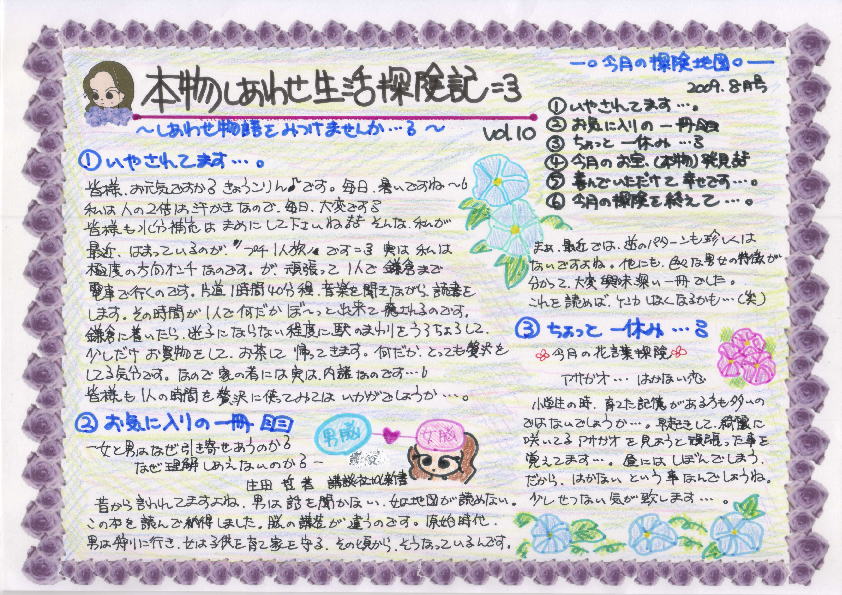 本物しあわせ生活探険記=3
～しあわせ物語をみつけませんか…る ～
vol.10
ー○今月の探険地図○ー
2009.8月号
①いやされてます…。
②お気に入りの一冊
③ちょっと一休み…る
④今月のお宝(本物)発見
⑤喜んでいただけて幸せです…。
⑥今月の探険を終えて…。
①いやされてます…。
皆様、お元気ですかる きょうこりん♪です。毎日、暑いですね～
私は人の2倍は汗かきなので、毎日、大変です
皆様も水分補給はまめにして下さいね そんな、私が
最近、はまっているのが、"プチ1人旅"です=3 実は、私は
極度の方向オンチなのです。が、頑張って1人で鎌倉まで
電車で行くのです。片道1時間40分程、音楽を聞きながら、読書を
します。その時間が1人で何だかぼ～っと出来て癒されるのです。
鎌倉に着いたら、迷子にならない程度に駅のまわりをうろちょろして、
少しだけお買物をして、お茶して帰ってきます。何だか、とっても贅沢を
してる気分です。なので家の者には実は、内諸なのです…
皆様も1人の時間を贅沢に使ってみてはいかがでしょうか…。
②お気に入りの一冊
男脳
女脳
～女と男はなぜ引き寄せあうのかる
なぜ理解しあえないのかる～
庄田 哲 著 講談社 新書
昔から言われてますよね、男は話を聞かない、女は地図が読めない。
この本を読んで納得しました。脳の構造が違うのです。原始時代、
男は狩りに行き、女は子供を育て家を守る、その頃から、そうなっているんです。
まぁ、最近では、逆のパターンも珍しくは
ないですよね。他にも、色々な男女の特徴が
分かって、大変興味深い一冊でした。
これを読めば、ケンカしなくなるかも…(笑)
③ちょっと一休み…る
今月の花言葉探険
アサガオ…はかない恋
小学生の時、育てた記憶がある方も多いの
ではないでしょうか…。早起きして、綺麗に
咲いてるアサガオを見ようと頑張った事を
覚えてます…。昼にはしぼんでしまう、
だから、はかないという事なんでしょうね。
少しせつない気が致します…。